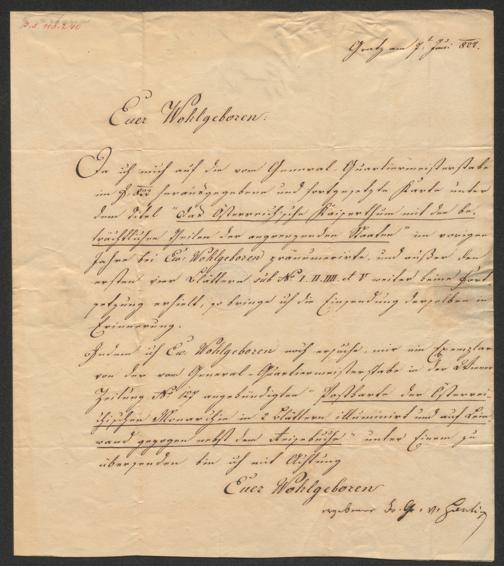 Gratz am 7t Juni 822.
Euer Wohlgeboren.
Da ich mich auf die vom General-Quartiermeisterstabe
im J. 822 herausgegebene und fortgesetzte Karte unter
dem Titel "das Österreichische Kaiserthum mit den be-
trächtlichen Theilen der angrenzenden Staaten" im vorigen
Jahre bei Eu. Wohlgeboren pränumerirte, und außer den
ersten vier Blättern sub No I. II. IIII. et V weiter keine Fort-
setzung erhielt, so bringe ich die Einsendung derselben in
Erinnerung.
Indem ich Eu. Wohlgeboren noch ersuche, mir ein Exemplar
von der vom General-Quartiermeisterstabe in der Wiener
Zeitung No angekündigten "Postkarte der Österrei-
chischen Monarchie in 2 Blättern illuminirt und auf Lein-
wand gezogen nebst dem Reisebuche" unter Einem zu
übersenden bin ich mit Achtung
Euer Wohlgeboren
ergebener